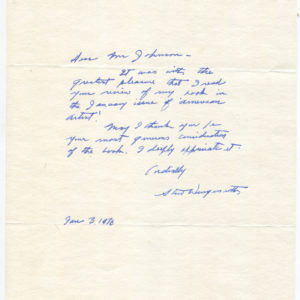 Dear Mr Johnson -
It was with the
greatest pleasure that I read
your review of my book in
the January issue of American
Artist!
May I thank you for
your most generous consideration
of the book. I deeply appreciate it.
Cordially
Jan 3 1978